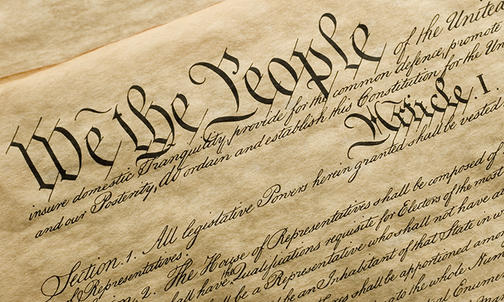 We the People of the United
insure domestic Tranquility, provide for the common defence, promote
and our Posterity, do ordain and establish this Constitution for the Un
Article. I.
Section. 1. All legislative Powers herein granted shall be vested
Representatives.
2. The House of Representatives shall be composed of
shall have the Qualifications requisite for Electors of the most
be a Representative who shall not have a
be an Inhabitant of that State in
shall be apportioned amo
to the whole Num